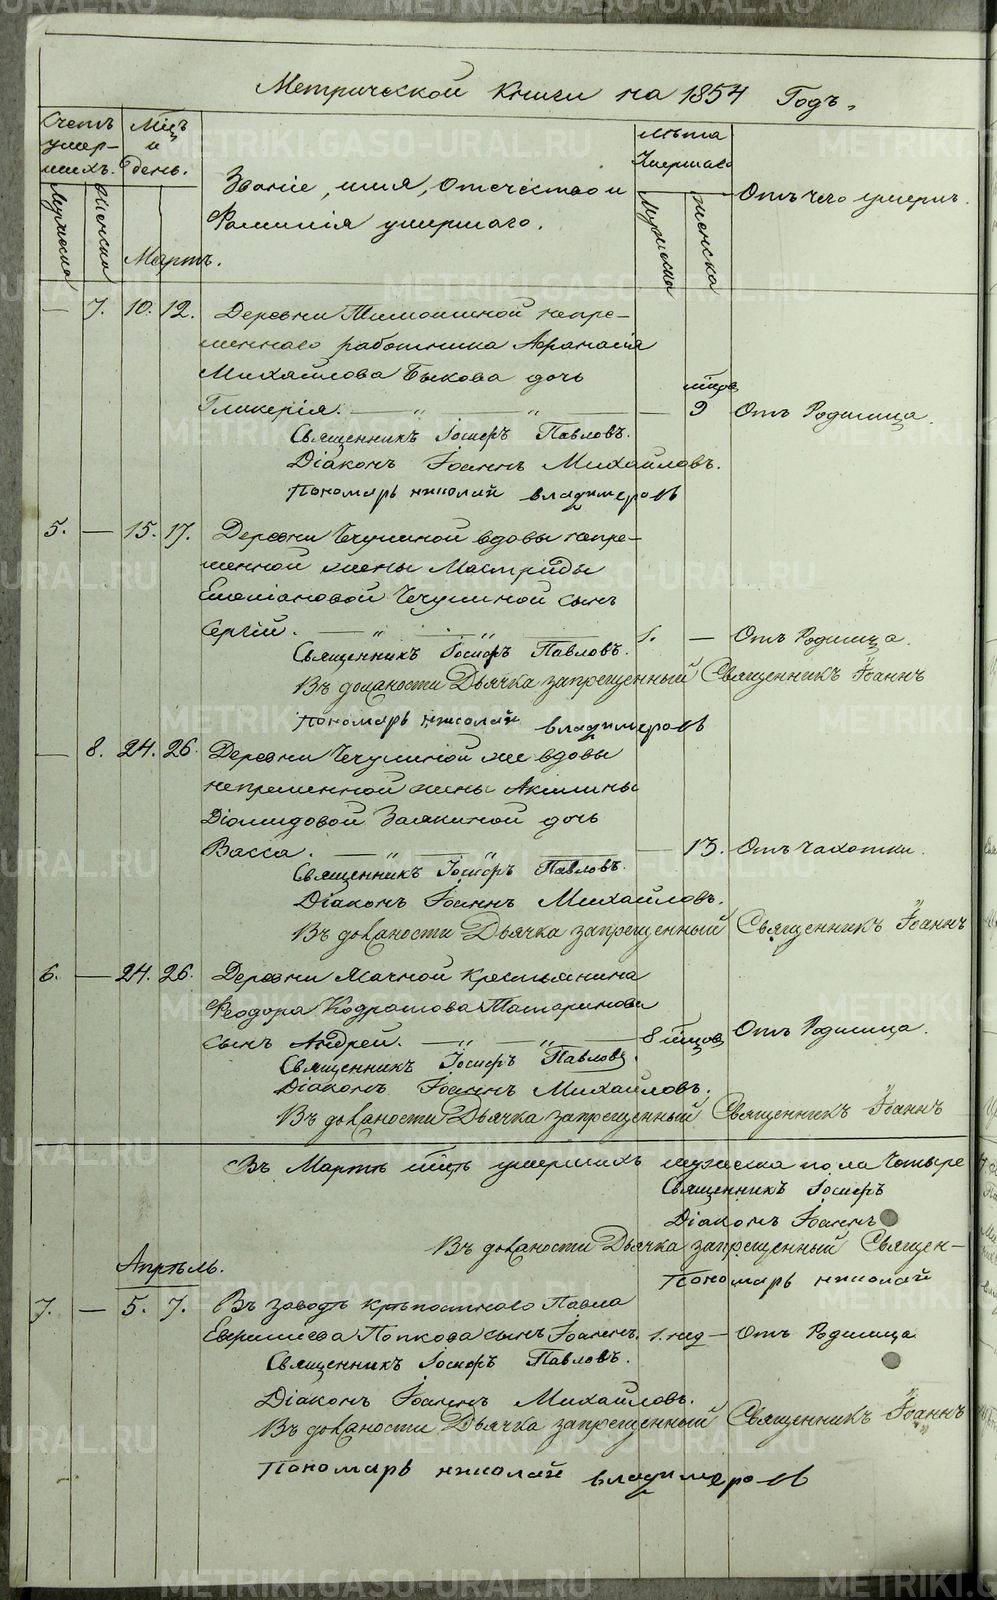 Метрической Книги на 1854 Годъ.
Счетъ умер-шихъ.
Мужеска
Женска
Мцъ и День.
Званіе, имя, отечество и
Фамилія умершаго.
Лѣта Умершаго
Мужеска
Женска
Отъ чего умеръ.
Мартъ.
— 7. 10. 12. Деревни Тимошиной непре-
меннаго работника Афанасія
Михайлова Быкова дочь
Гликерія. — „ — „ — — мцов 9 Отъ Родимца.
Священникъ Іосифъ Павловъ.
Діаконъ Іоаннъ Михайловъ.
Пономарь николай владимеровъ
5. — 15. 17. Деревни Чечулиной вдовы непре-
менной жены Мастриды
Емеліановой Чечулиной сынъ
Сергій. — „ — „ — 1. — Отъ Родимца.
Священникъ Іосифъ Павловъ.
Въ должности Дьячка запрещенный Священникъ Іоаннъ
Пономарь николай владимеровъ
— 8. 24. 26. Деревни Чечулиной же вдовы
непременной жены Акилины
Діомидовой Заякиной дочь
Васса. — „ — „ — — 13. Отъ чахотки.
Священникъ Іосифъ Павловъ.
Діаконъ Іоаннъ Михайловъ.
Въ должности Дьячка запрещенный Священникъ Іоаннъ
6. — 24. 26. Деревни Ялчной крестьянина
Феодора Кодратова Татаринова
сынъ Андрей. — „ — „ — 8 мцов Отъ Родимца.
Священникъ Іосифъ Павловъ.
Діаконъ Іоаннъ Михайловъ.
Въ должности Дьячка запрещенный Священникъ Іоаннъ
Въ Мартѣ мцѣ умершихъ мужеска пола Четыре
Священникъ Іосифъ
Діаконъ Іоаннъ
Въ должности Дьячка запрещенный Священ-
Пономарь николай
Апрѣль.
7. — 5. 7. Въ заводѣ крѣпостнаго Павла
Евфимиева Попкова сынъ Іоаннъ. 1. нед — Отъ Родимца
Священникъ Іосифъ Павловъ.
Діаконъ Іоаннъ Михайловъ.
Въ должности Дьячка запрещенный Священникъ Іоаннъ
Пономарь николай владимеровъ
METRIKI.GASO-URAL.RU